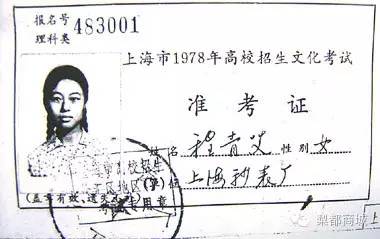 报名号
理科类 483001
上海市1978年高校招生文化考试
准考证
姓名 程青 性别 女
单位 上海秒表厂
高校招生
(盖章有效,遗失
专用章
梨都商城